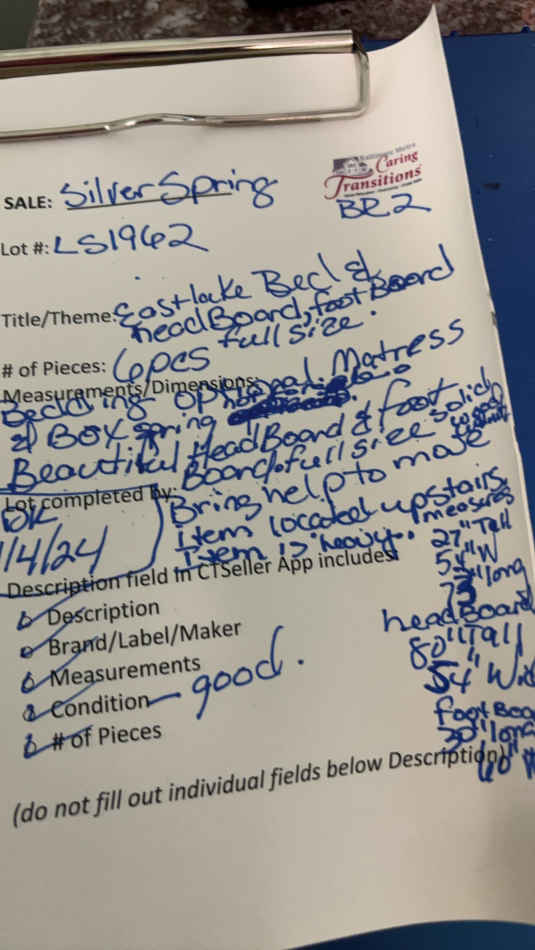 Baltimore Metro
Caring
Transitions
SALE: Silver Spring
BR2
Lot #: LS1962
Title/Theme: Eastlake Bed &
headBoard, foot Board
full size.
# of Pieces: 6pcs
Measurements/Dimensions:
Bedding optional Matress
& Box spring
Beautiful HeadBoard & foot
Board. full size solid
wood
Lot completed by:
DK
1/4/24
Bring help to move
Item located upstairs
Item is heavy.
measures
27" Tall
54" W
73" long
headBoard
80" Tall
54" Wid
foot Boa
30" long
60" W
Description field in CTSeller App includes:
Description
Brand/Label/Maker
Measurements
Condition - good.
# of Pieces
(do not fill out individual fields below Description)